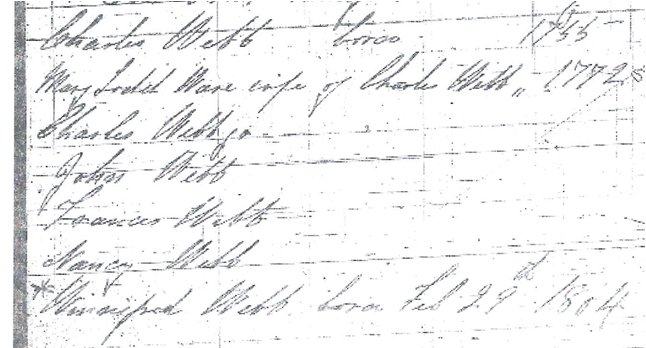 Charles Webb born 1755
Mary Todd Ware wife of Charles Webb " 1772
Charles Webb jr
John Webb
Frances Webb
Nancy Webb
* Winnifred Webb born Feb 29th 1804